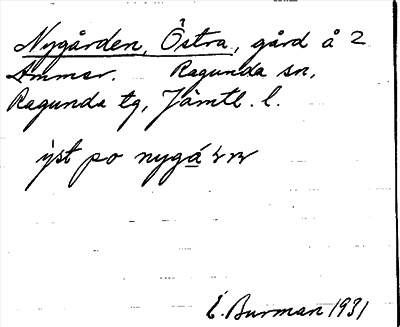 Nygården, Östra, gård å 2
Ammer. Ragunda sn,
Ragunda tg, Jämtl. l.
yst po
E. Burman 1931